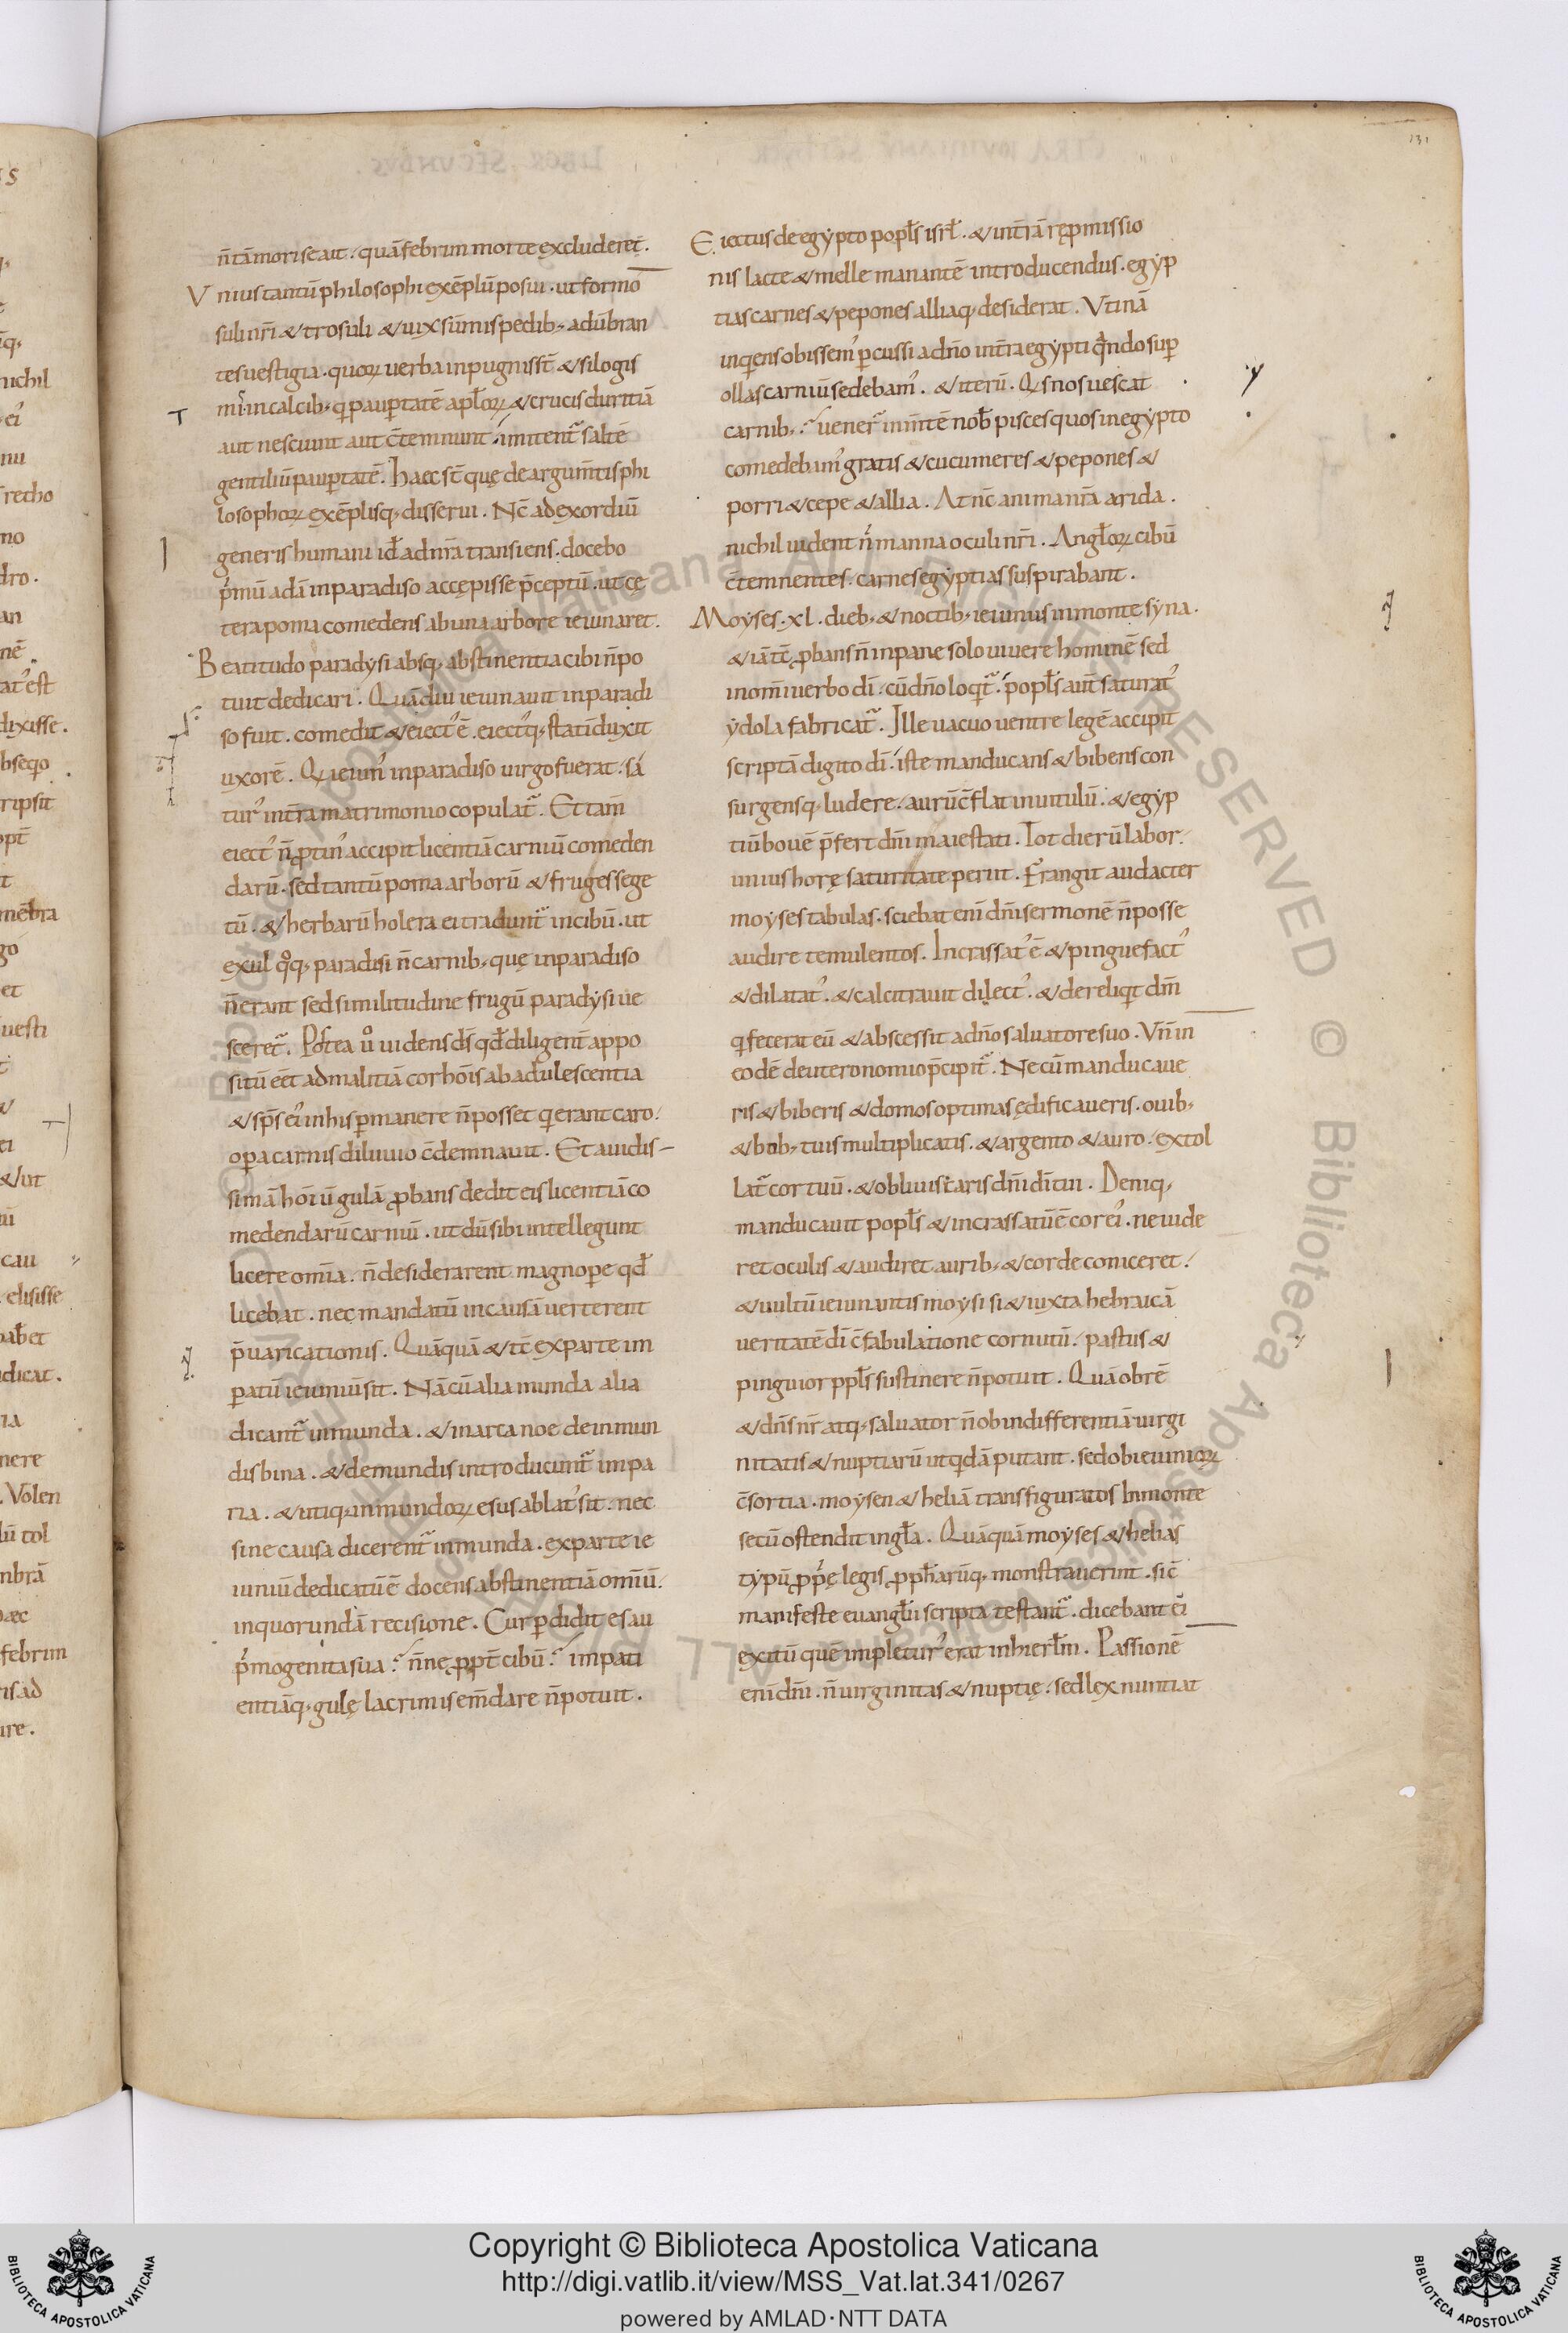 131
n̄ tā mori se ait. quā febrim morte excluderet.
Vnius tantū philosophi exēplū posui. ut formo
suli nr̄i & trosuli & uix sūmis pedib; adūbran
tes uestigia. quoꝝ uerba in pugnis st̄ & silogis
mi in calcib; q paup̱tatē apłoꝝ & crucis duritiā
aut nesciunt aut c̄temnunt. imitent᷑ saltē
gentiliū paup̱tatē. Haec st̄ quę de argum̄tis phi
losophoꝝ exēplisq; disserui. Nc̄ ad exordiū
generis humani id ad nr̄a transiens. docebo
p̍mū adā in paradiso accępisse p̄ceptū. ut cę
tera poma comedens ab una arbore ieiunaret.
Beatitudo paradysi absq; abstinentia cibi n̄ po
tuit dedicari. Quādiu ieiunauit in paradi
so fuit. comedit & eiect᾽ ē. eiect᾽q; statī duxit
uxorē. Q ieiun᾽ in paradiso uirgo fuerat. sa
tur᾽ in tr̄a matrimonio copulat᷑. Et tam̄
eiect᾽ n̄ ꝓtin᾽ accipit licentiā carniū comeden
darū. sed tantū poma arborū & fruges sege
tū. & herbarū holera ei tradunt᷑ in cibū. ut
exul qͦq; paradisi n̄ carnib; quę in paradiso
n̄ erant sed similitudine frugū paradysi ue
sceret᷑. Postea uͦ uidens ds̄ qđ diligent̄ appo
sitū eēt ad malitiā cor hoīs ab adulescentia
& sps̄ ei᾽ in his p̱manere n̄ posset q erant caro.
op̱a carnis diluuio c̄demnauit. Et auidis
simā hoīū gulā ꝓbans dedit eis licentiā co
medendarū carniū. ut dū sibi intellegunt
licere omīa. n̄ desiderarent magnop̱e qđ
licebat. nec mandatū in causā uerterent
p̄uaricationis. Quāquā & tc̄ ex parte im
p̱atū ieiuniū sit. Nā cū alia munda alia
dicant᷑ inmunda. & in arca noe de inmun
dis bina. & de mundis introducunt᷑ impa
ria. & utiq; inmundoꝝ esus ablat᾽ sit. nec
sine causa dicerent᷑ inmunda. ex parte ie
iuniū dedicatū ē docens abstinentiā omīū.
in quorundā recisione. Cur p̱didit esau
p̍mogenita sua? n̄ne ꝓpt̄ cibū? impati
entiāq; gulę lacrimis em̄dare n̄ potuit.
Eiectus de egypto popłs isrł. & in tr̄ā rep̱missio
nis lacte & melle manantē introducendus. egyp
tias carnes & pepones alliaq; desiderat. Vtinā
inqens obissem᾽ p̱cussi a dn̄o in tr̄a egypti qͣndo sup̱
ollas carniū sedebam᾽. & iterū. Qs nos uescat
carnib;? uener̄ in m̄tē nob̄ pisces quos in egypto
comedebam᾽ gratis & cucumeres & pepones &
porri & cepe & allia. At nc̄ anima nr̄a arida.
nichil uident n̍ manna oculi nr̄i. Angłoꝝ cibū
c̄temnentes. carnes egyptias suspirabant.
Moyses. xl. dieb; & noctib; ieiunus in monte syna.
& iā tc̄ ꝓbans n̄ in pane solo uiuere hominē sed
in om̄i uerbo dī. cū dn̄o loqt᷑. popłs aut̄ saturat᾽
ydola fabricat᷑. Ille uacuo uentre legē accipit
scriptā digito dī. iste manducans & bibens con
surgensq; ludere. aurū c̄flat in uitulū. & egyp
tiū bouē p̄fert dn̄i maiestati. Tot dierū labor.
unius horę saturitate periit. Frangit audacter
moyses tabulas. sciebat enī dn̄i sermonē n̄ posse
audire temulentos. Incrassat᾽ ē & pinguefact᾽
& dilatat᾽. & calcitrauit dilect᾽. & dereliqt dm̄
q fecerat eū & abscessit a dn̄o saluatore suo. Vn̄ in
eodē deuteronomio p̄cipit᷑. Ne cū manducaue
ris & biberis & domos optimas ędificaueris. ouib;
& bob; tuis multiplicatis. & argento & auro. extol
lat᷑ cor tuū. & obliuiscaris dn̄i dī tui. Deniq;
manducauit popłs & incrassatū ē cor ei᾽. ne uide
ret oculis & audiret aurib; & corde coniceret.
& uultū ieiunantis moysi si & iuxta hebraicā
ueritatē dī c̄fabulatione cornutū. pastus &
pinguior ppłs sustinere n̄ potuit. Quā obrē
& dn̄s nr̄ atq; saluator n̄ ob indifferentiā uirgi
nitatis & nuptiarū ut qdā putant. sed ob ieiunioꝝ
c̄sortia. moysen & heliā transfiguratos in monte
secū ostendit in gła. Quāquā moyses & helias
typū ꝓp̍ę legis ꝓphārūq; monstrauerint. sic̄
manifeste euangłii scripta testant᷑. dicebant ei᾽
exitū quē impletur᾽ erat in hierłm. Passionē
enī dn̄i. n̄ uirginitas & nuptię. sed lex nuntiat
Copyright © Biblioteca Apostolica Vaticana
http://digi.vatlib.it/view/MSS_Vat.lat.341/0267
powered by AMLAD·NTT DATA